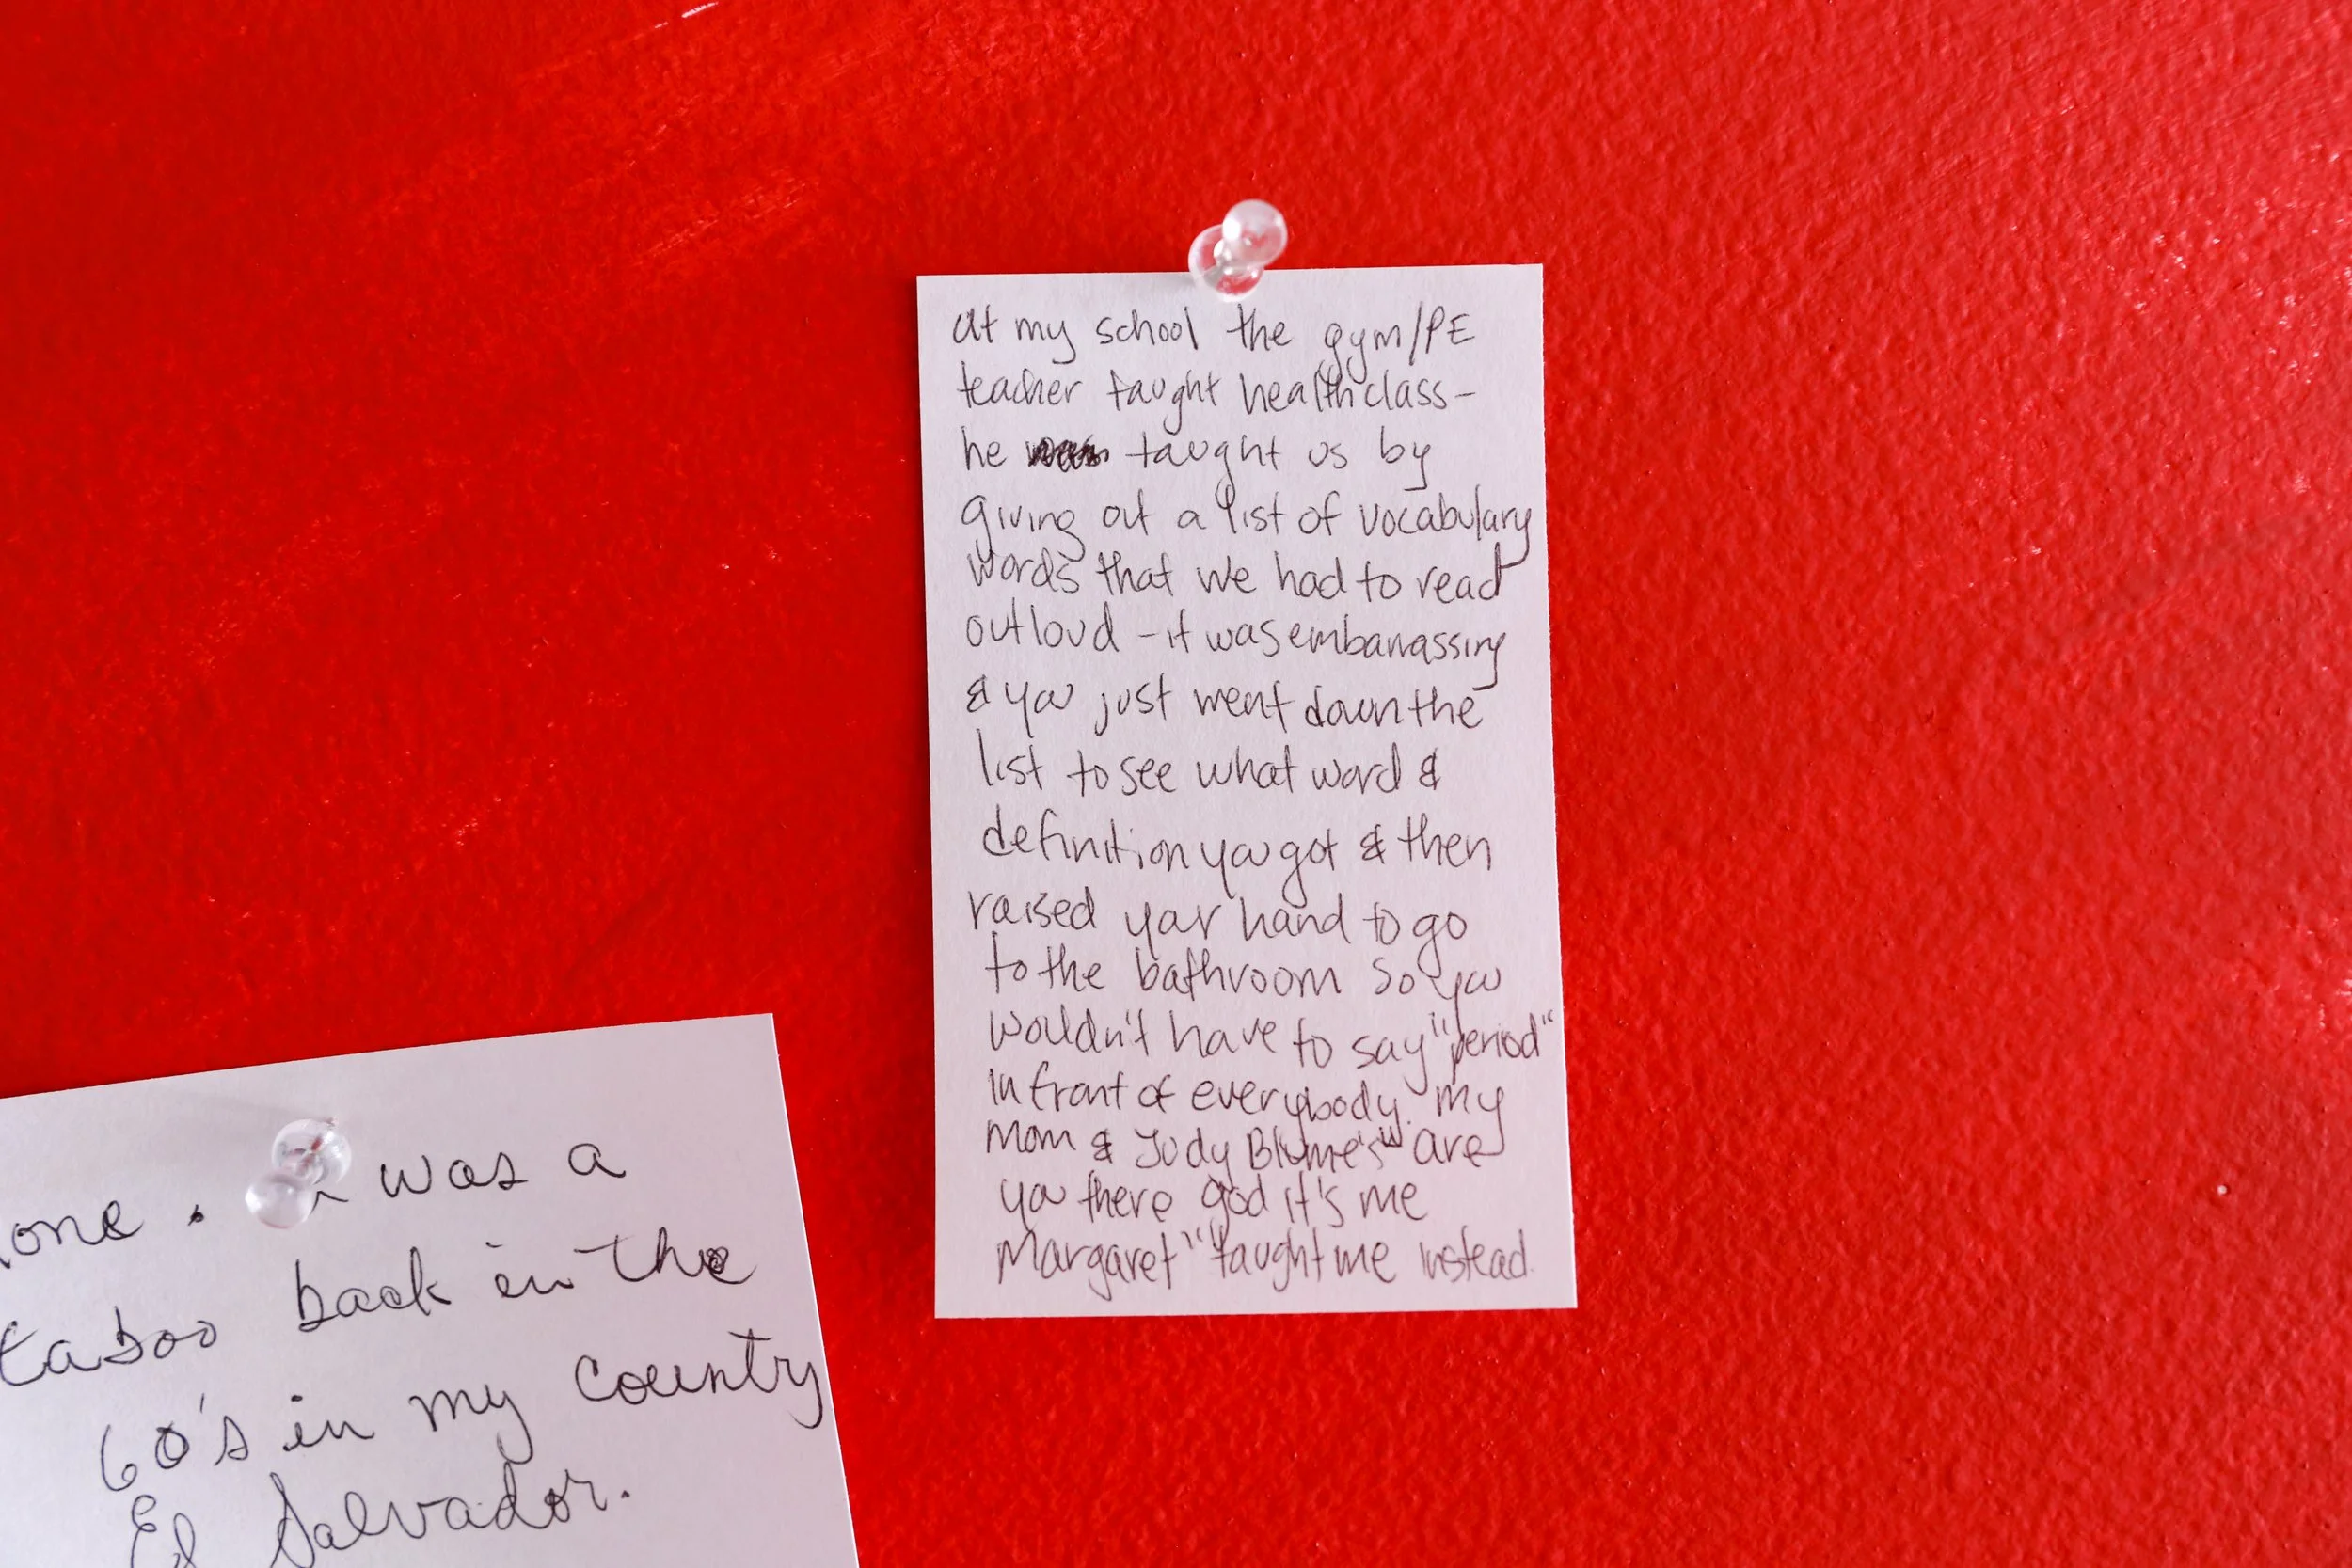 at my school the gym/PE
teacher taught health class-
he taught us by
giving out a list of vocabulary
words that we had to read
out loud - it was embarrassing
& you just went down the
list to see what word &
definition you got & then
raised your hand to go
to the bathroom so you
wouldn't have to say "period"
in front of everybody. My
mom & Judy Blume's "are
you there god it's me
Margaret" taught me instead.
was a
taboo back in the
60's in my country
El Salvador.